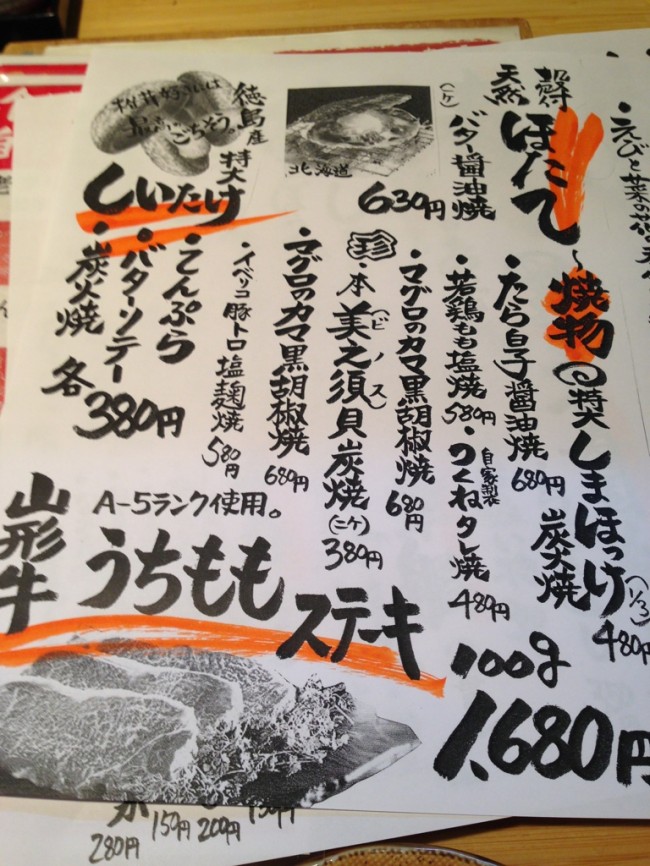 ・えびと菜の花の天
殻付
天然
ほたて
(二ケ)
バター醤油焼
630円
北海道
椎茸好きには
最高のごちそう。
徳島産
特大
しいたけ
・てんぷら
・バターソテー
・炭火焼
各380円
～焼物
特大しまほっけ
炭火焼
(1/2)
480円
・たら白子醤油焼
680円
・若鶏もも塩焼
580円
・自家製
つくねタレ焼
480円
・マグロのカマ黒胡椒焼
680円
珍
・本美之須貝炭焼
(ヱビノス)
(二ケ)
380円
・マグロのカマ黒胡椒焼
680円
・イベリコ豚トロ塩麹焼
580円
山形牛
A-5ランク使用。
うちもも
ステーキ
100g
1,680円
280円
150円
200円